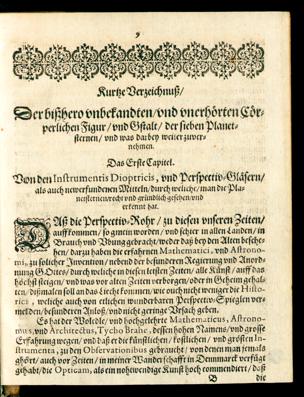 Kurtze Verzeichnuß/
Der bißhero vnbekandten/vnd vnerhörten Cör-
perlichen Figur/ vnd Gstalt/ der sieben Planet-
sternen/ vnd was darbey weiter zuver-
nehmen.
Das Erste Capitel.
Von den Instrumentis Dioptricis, vnd Perspectiv-Gläsern/
als auch newerfundenen Mitteln/ durch welche/ man die Pla-
netsternen recht vnd gründlich gesehen/ vnd
erkennt hat.
DAß die Perspectiv-Rohr/ zu diesen vnseren Zeiten/
auffkommen/ so gmein worden/ vnd schier in allen Landen/ in
Brauch vnd Übung gebracht/ weder daß bey den Alten besche-
hen/ darzu haben die erfahrnen Mathematici, vnd Astrono-
mi, zu solcher Invention/ nebend der besonderen Regierung vnd Anord-
nung GOttes/ durch welche in diesen letsten Zeiten/ alle Künst/ auff das
höchst steigen/ vnd was vor alten Zeiten verborgen/ oder in Geheim gehal-
ten/ dißmalen soll an das Liecht kommen/ wie auch nicht weniger die Histo-
rici, welche auch von etlichen wunderbaren Perspectiv-Spieglen ver-
melden/ besonderen Anlaß/ vnd nicht geringe Vrsach geben.
Es hat der WolEdle/ vnd hochgelehrte Mathematicus, Astrono-
mus, vnd Architectus, Tycho Brahe, dessen hohen Namens/ vnd grosse
Erfahrung wegen/ vnd daß er die künstlichen/ kostlichen/ vnd grösten In-
strumenta, zu den Observationibus gebraucht/ von denen man jemals
ghört/ auch vor Zeiten/ in meiner Wanderschafft in Dennmarck verfügt
gehabt/ die Opticam, als ein nohtwendige Kunst hoch commendiert/ daß
B die